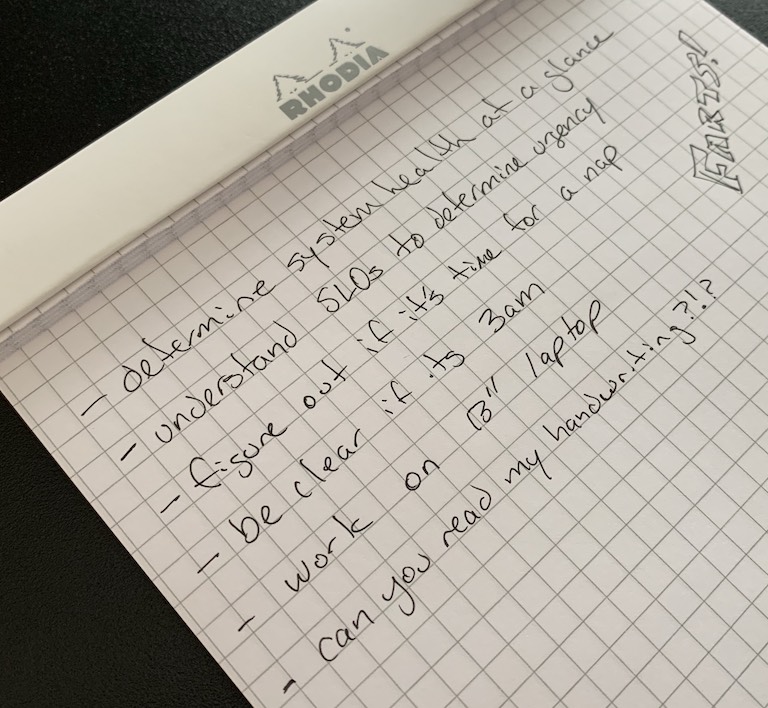 RHODIA
- determine system health at a glance
- understand SLOs to determine urgency
- figure out if it's time for a nap
- be clear if its 3am
- work on 13" laptop
- can you read my handwriting?!?
FARTS!